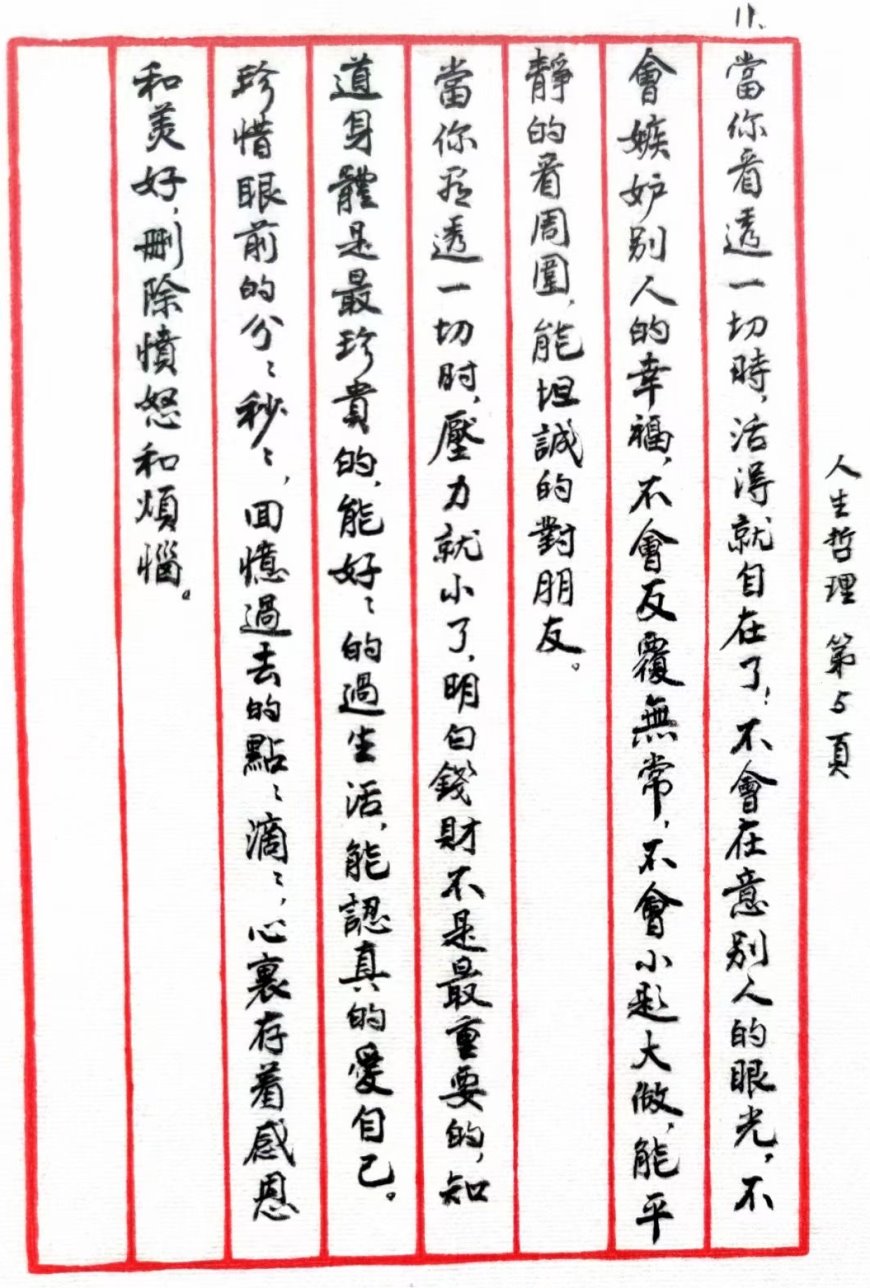 人生哲理 第5頁
11.
當你看透一切時,活得就自在了!不會在意別人的眼光,不
會嫉妒別人的幸福,不會反覆無常,不會小題大做,能平
靜的看周圍,能坦誠的對朋友。
當你看透一切时,壓力就小了,明白錢財不是最重要的,知
道身體是最珍貴的,能好〻的過生活,能認真的愛自己。
珍惜眼前的分〻秒〻,回憶過去的點〻滴〻,心裏存着感恩
和美好,刪除憤怒和煩惱。